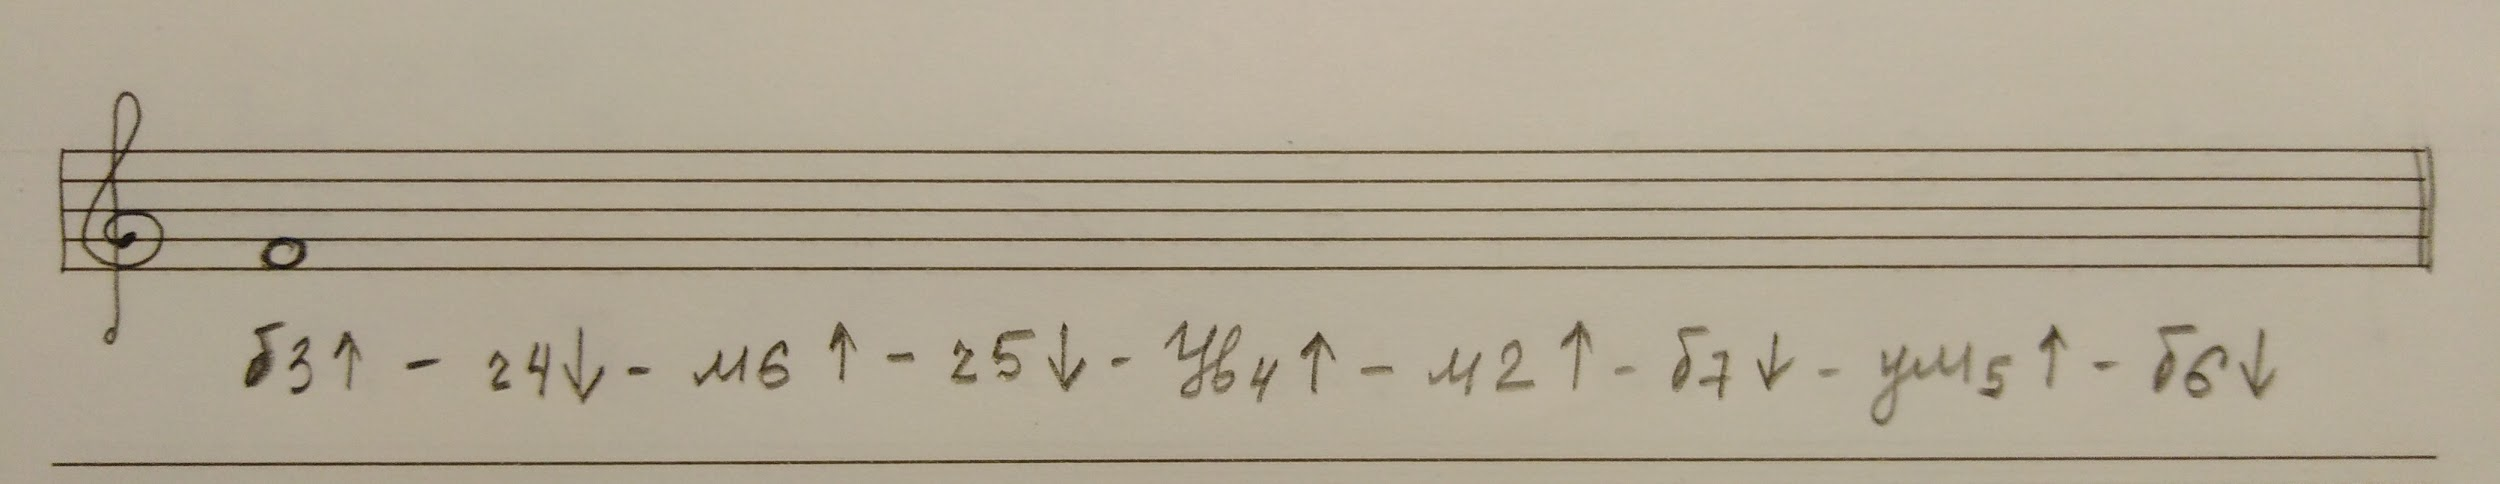 б3↑ - г4↓ - м6↑ - г5↓ - Ув4↑ - м2↑ - б7↓ - ум5↑ - б6↓